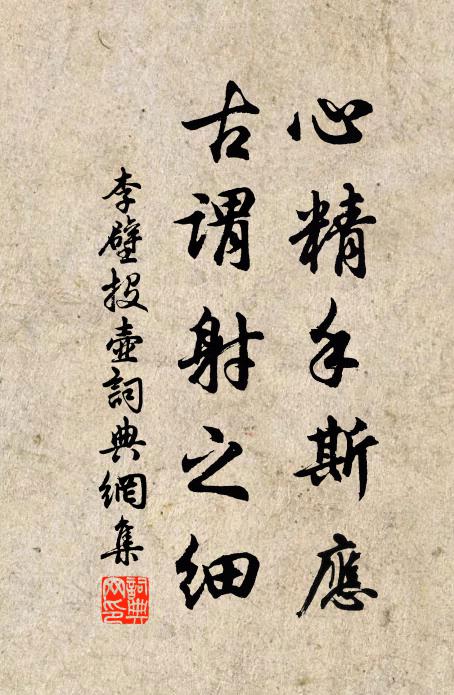 心精手斯應
古謂射之細
李壁投壺詞典網集
詞典
网印